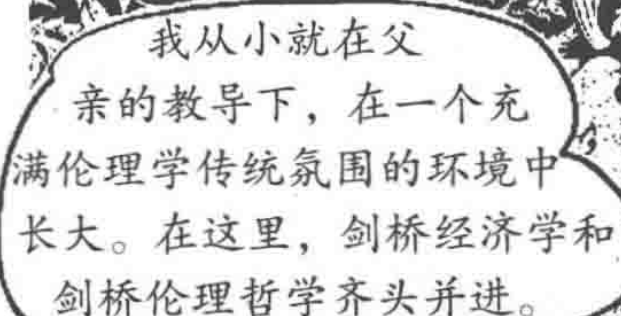 我从小就在父
亲的教导下，在一个充
满伦理学传统氛围的环境中
长大。在这里，剑桥经济学和
剑桥伦理哲学齐头并进。